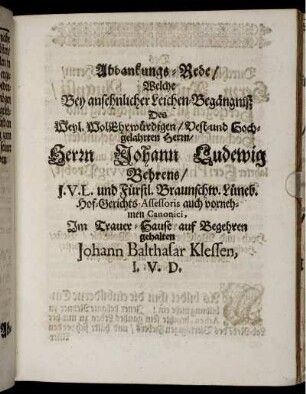 Abdankungs-Rede/
Welche
Bey ansehnlicher Leichen-Begängnüß
Des
Weyl. WolEhrwürdigen/ Vest- und Hoch-
gelahrten Herrn/
Herrn Johann Ludewig
Behrens/
J.V.L. und Fürstl. Braunschw. Lüneb.
Hof-Gerichts-Assessoris auch vorneh-
men Canonici,
Im Trauer-Hause auf Begehren
gehalten
Johann Balthasar Klessen,
I. V. D.